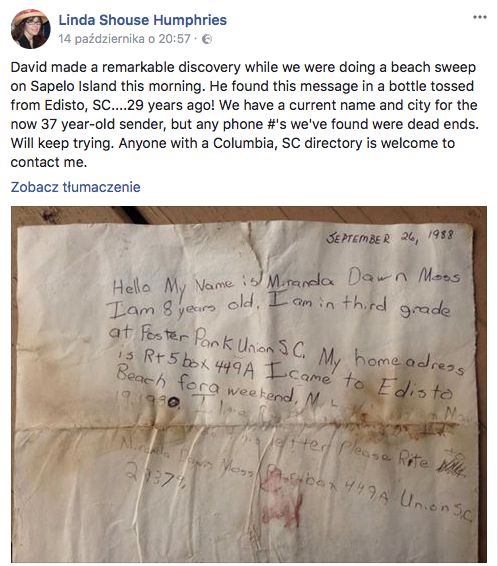 Linda Shouse Humphries
14 października o 20:57 ·
David made a remarkable discovery while we were doing a beach sweep
on Sapelo Island this morning. He found this message in a bottle tossed
from Edisto, SC....29 years ago! We have a current name and city for the
now 37 year-old sender, but any phone #'s we've found were dead ends.
Will keep trying. Anyone with a Columbia, SC directory is welcome to
contact me.
Zobacz tłumaczenie
SEPTEMBER 26, 1988
Hello My Name is Miranda Dawn Moss
I am 8 years old. I am in third grade
at Foster Park Union S.C. My home adress
is Rt 5 box 449A I came to Edisto
Beach for a weekend. M
I
letter Please Rite
Miranda Dawn Moss box 449A Union S.C.
29379